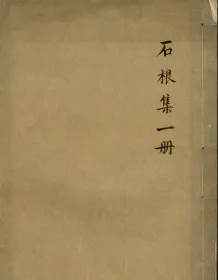 石根集一册